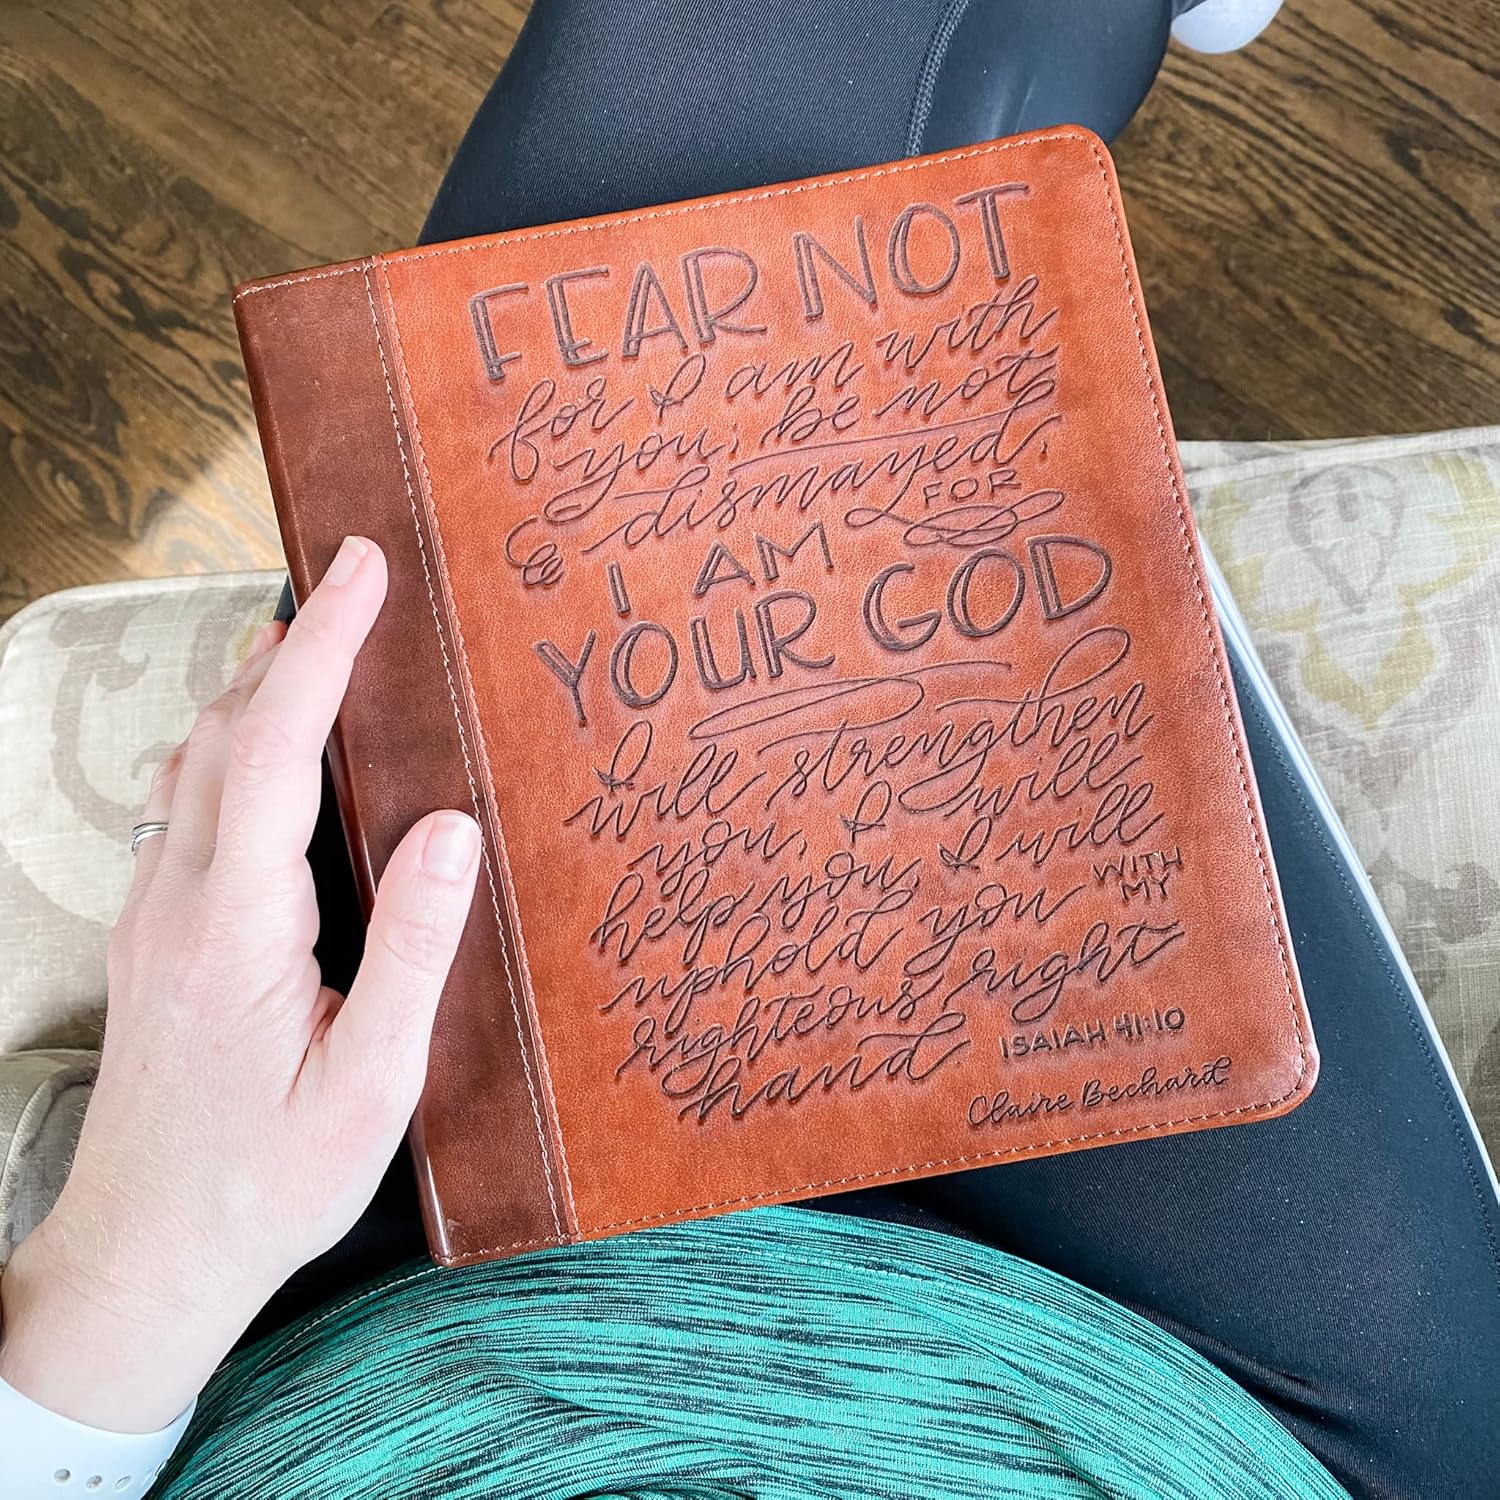 FEAR NOT
for I am with
you; be not
dismayed;
FOR
I AM
YOUR GOD
I
will strengthen
you, I will
help you, I will
uphold you WITH MY
righteous right
hand.
ISAIAH 41:10
Claire Bechard